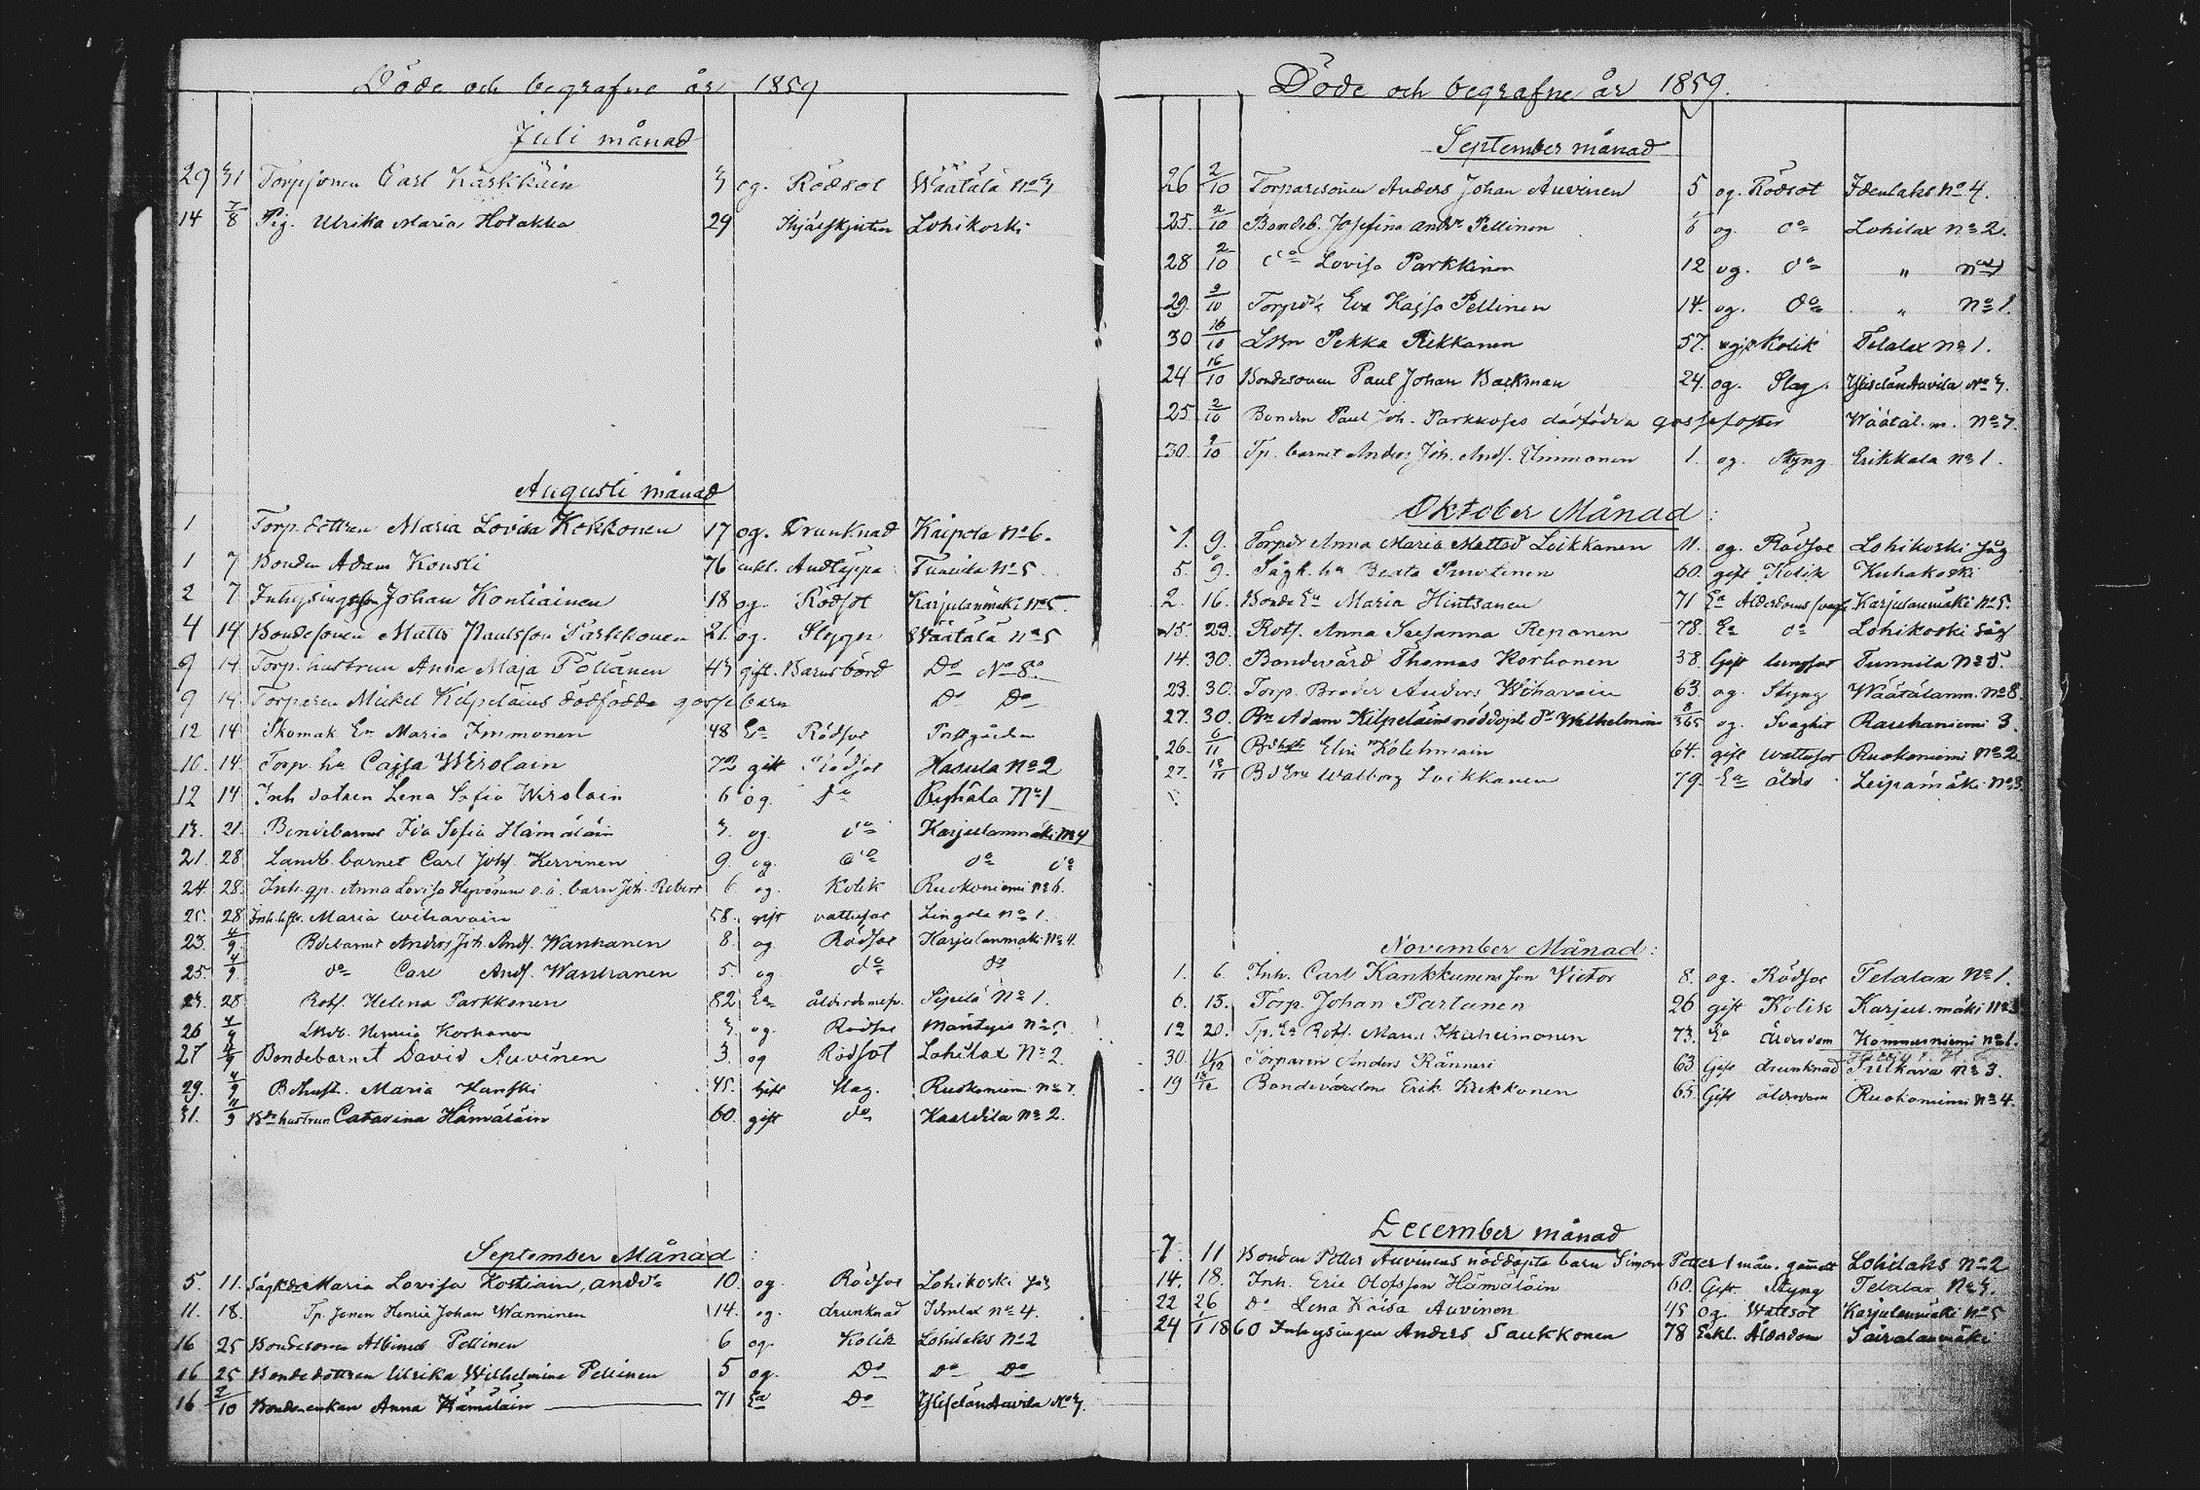 Döde och begrafne år 1859
Juli månad
29 31 Torpsonen Carl Käikkäin 3 og. Rödsot Wäätälä No 3
14 7/8 Pig. Ulrika Maria Hotakka 29 Lohikoski
Augusti månad
1 Torp. dottren Maria Lovisa Kokkonen 17 og. Drunknad Kaipola No 6.
1 7 Bonden Adam Konsti 76 enkl. Andtäppa Tunnila No 5
2 7 Inhysingson Johan Kontiainen 18 og. Rödsot Karjulanmäki No 5.
4 14 Bondesonen Matts Paulsson Parkkonen 21. og. Wäätälä No 5
9 14 Torp. hustrun Anna Maja Pöllänen 43 gift. Barnsbörd Do No 8.
9 14 Torparen Mickel Kilpeläins dödfödda gosse barn Do Do
12 14 Skomak En Maria Immonen 48 Ea Rödsot Prästgården
10. 14. Torp. hu Cajsa Wirolain 72 gift Rödsot Hasula No 2
12 14 Inh dotren Lena Sofia Wirolain 6 og. do Pyhälä No 1
13. 21. Bondebarnet Ida Sofia Hämäläin 3. og. do Karjulanmäki No 4
21. 28. Landb. barnet Carl Joh. Kervinen 9. og. do do do
24. 28. Inh. qp. Anna Lovisa Hyvönens o. ä. barn Joh. Robert 6 og. Kolik Ruokoniemi No 6.
25. 28 Inh. hst. Maria Wihavain 58. gift vattusot Lingola No 1.
23. 4/9. Bdebarnet Anders Joh. Ands. Wanhanen 8. og Rödsot Karjulanmäki No 4.
25. 4/9 do Carl Ands. Wanhanen 5. og do do
23. 28 Rots. Helena Parkkonen 82 Ea ålderdomssv. Sipilä No 1.
26 4/9 Korhonen 3 og. Rödsot Mäntysi No
27 4/9 Bondebarnet David Auvinen 3. og Rödsot Lohilax No 2
29. 4/9 Bdhust. Maria Hanski 45. Gift Slag. Ruokoniemi No
31. 11/9 Bde hustrun Catarina Hämäläin 60. gift do Kaartila No 2.
September Månad
5 11. Sågkds Maria Lovisa Kostiain, andr. 10. og Rödsot Lohikoski såg
11. 18. Tp. sonen Henric Johan Wanninen 14. og. drunknad Idenlax No 4.
16 25 Bondesonen Albinus Pellinen 6 og. Kolik Lohilaks No 2
16 25 Bondedottren Ulrika Wilhelmina Pellinen 5 og. Do Do Do
16 2/10 Bondeenkan Anna Hämäläin 71 Ea Do Yliselän Auvila No 3.
Döde och begrafne år 1859.
September månad
26 2/10 Torparesonen Anders Johan Auvinen 5 og. Rödsot Idenlaks No 4.
25. 2/10 Bondeb. Josefina andr Pellinen 6 og do Lohilax No 2.
28 2/10 do Lovisa Parkkinen 12 og. do " No 1
29. 9/10 Torpds Eva Kajsa Pellinen 14. og. do " No 1.
30 16/10 Pekka Pekkanen 57. gift Kolik Telalax No 1.
24 16/10 Bondesonen Paul Johan Backman 24. og. Slag. Yliselän Auvila No 3.
25 2/10 Bonden Paul Joh. Parkkoses dödfödda gossefoster Wäätäl.m. No 7.
30. 9/10 Tp. barnet Anders Joh. Ands. Immonen 1. og. Styng Erikkala No 1.
Oktober Månad
1. 9. Torpds Anna Maria Mattsd Loikkanen 11. og. Rödsot Lohikoski såg
5. 9. Sågk. hu Beata Purtinen 60. gift Kolik Kuhakoski
2. 16. Bonde Ea Maria Hintsanen 71 Ea Ålderdoms svagh Karjulanmäki No 5.
15. 23. Rots. Anna Susanna Reponen 78. Ea do Lohikoski såg
14. 30. Bondevärd Thomas Korhonen 38. Gift lungsot Tunnila No 5.
23. 30. Torp. Broder Anders Wihavain 63. og. Styng Wäätälänm. No 8
27. 30. Bn Adam Kilpeläins nöddöpt dr Wilhelmina 8/365 og. Svaghet Rauhaniemi 3
26. 6/11 Bdhst Elin Kolehmain 64. gift wattusot Ruokoniemi No 2
27. 13/11 Bd Enk Walborg Loikkanen 79. Ea åldrd Leipämäki No 3
November Månad:
1. 6. Inh. Carl Kankkunens son Victor 8. og. Rödsot Telalax No 1.
6. 13. Torp. Johan Partanen 26 gift Kolik Karjul. mäki No 3
12 20. Tp. Ea Rots. Maria Ikäheimonen 73. Ea ålderdom Kommerniemi No 1.
30. 11/12 Torparen Anders Ränneri 63 Gift drunknad Pulkova No 3.
19 18/12 Bondevärden Erik Kukkonen 65. Gift ålderdom Ruokoniemi No 4.
December månad
7. 11 Bonden Petter Auvinens nöddöpta barn Simon Petter 1 mån. gamalt Lohilaks No 2
14. 18. Inh. Eric Olofsson Hämäläin 60. Gift Styng Telalax No 3.
22 26 Do Lena Kaisa Auvinen 45 og. Wattsot Karjulanmäki No 5
24 1/1 1860 Inhysingen Anders Saukkonen 78 Enkl. Ålderdom Sairalanmäki